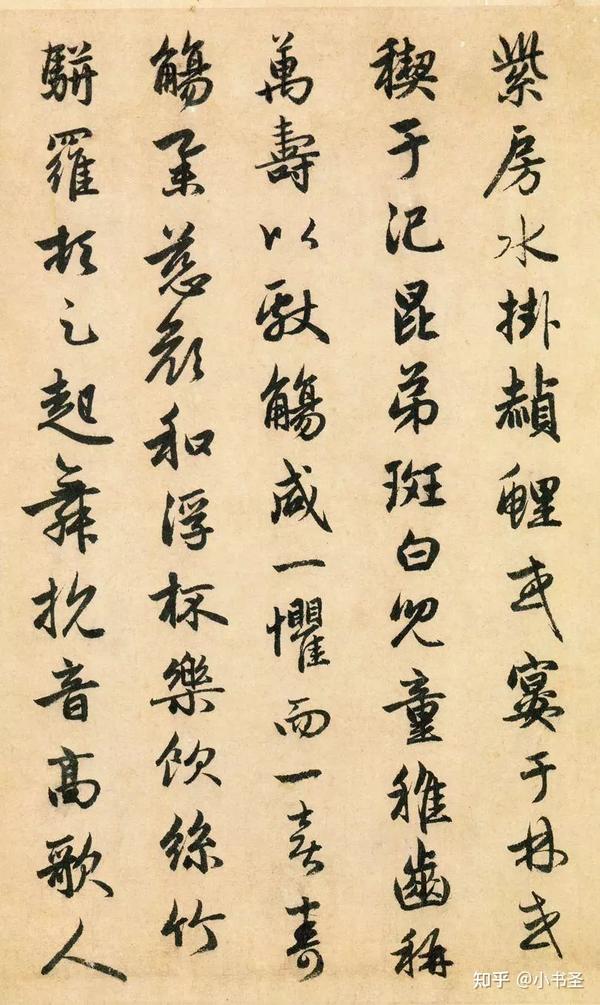 紫房水掛赬鯉或宴于林或
禊于汜昆弟斑白兒童稚齒稱
萬壽以獻觴咸一懼而一喜壽
觴舉慈顏和浮杯樂飲絲竹
駢羅頓足起舞抗音高歌人
知乎 @小书圣